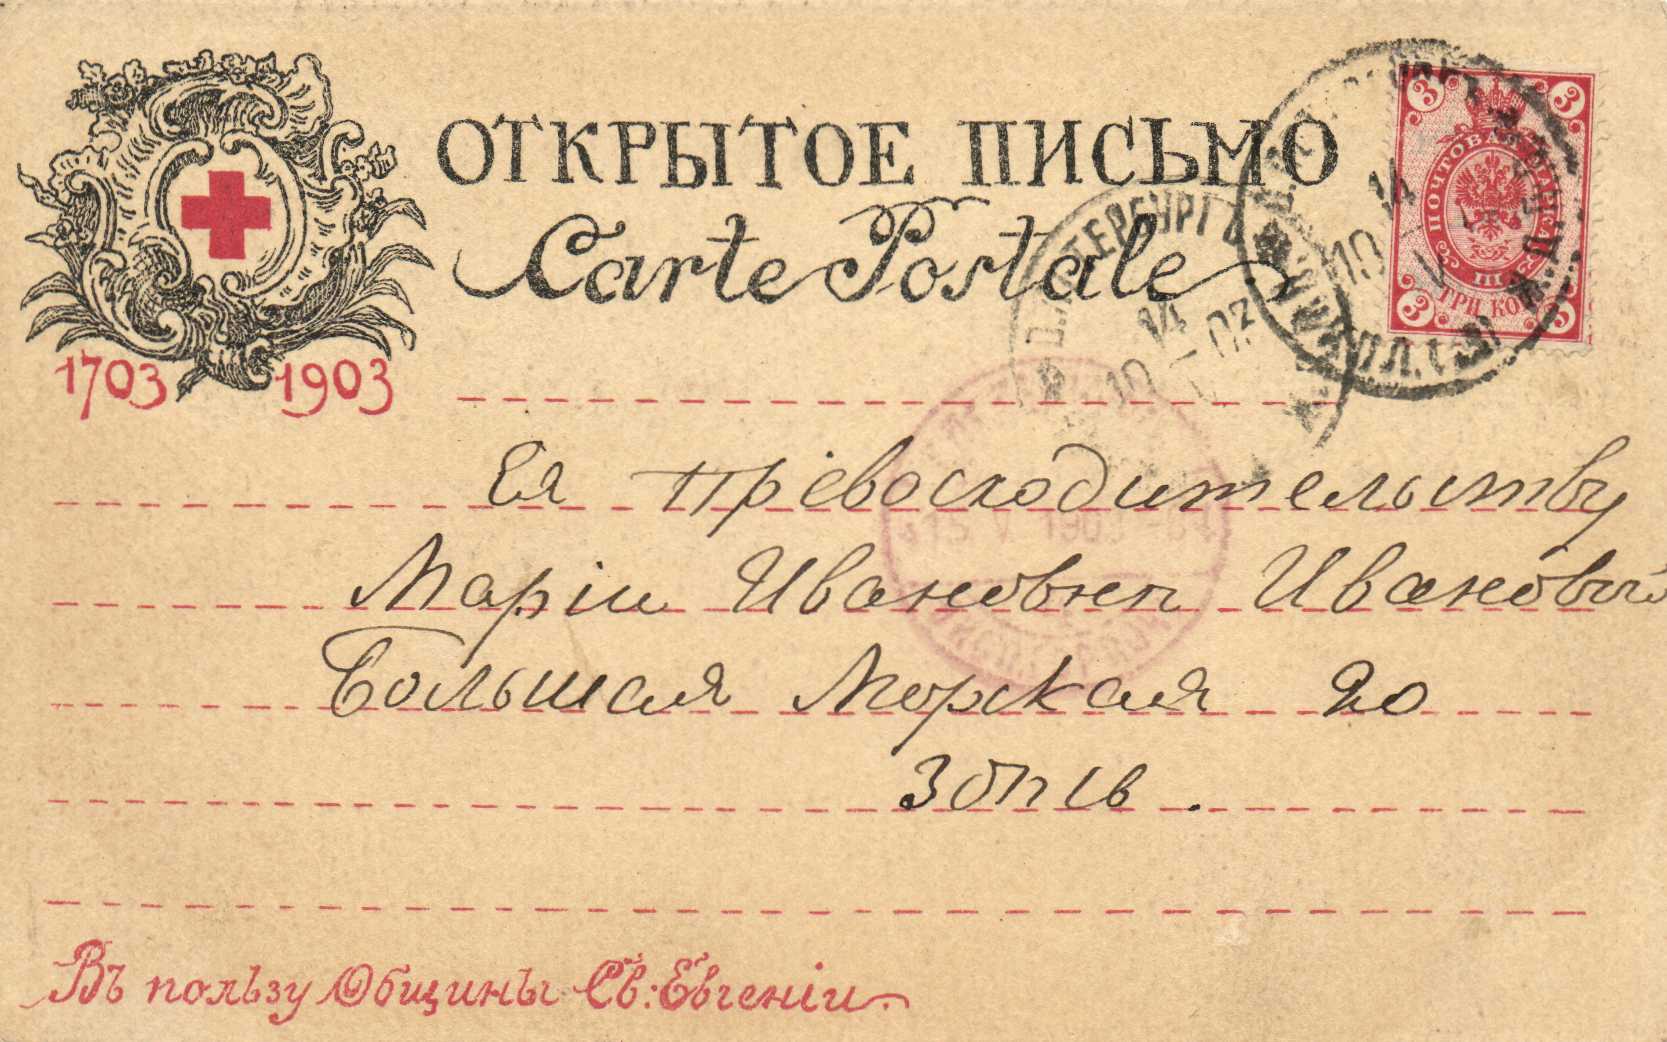 ОТКРЫТОЕ ПИСЬМО
Carte Postale
1703 1903
3 3
ПОЧТОВАЯ МАРКА
ТРИ КОП
3 3
14
10 V
14
10 V 03
15 V 1903
Ея Превосходительству
Маріи Ивановнѣ Ивановой
Большая Морская 20
Здѣсь.
Въ пользу Общины Св: Евгеніи.